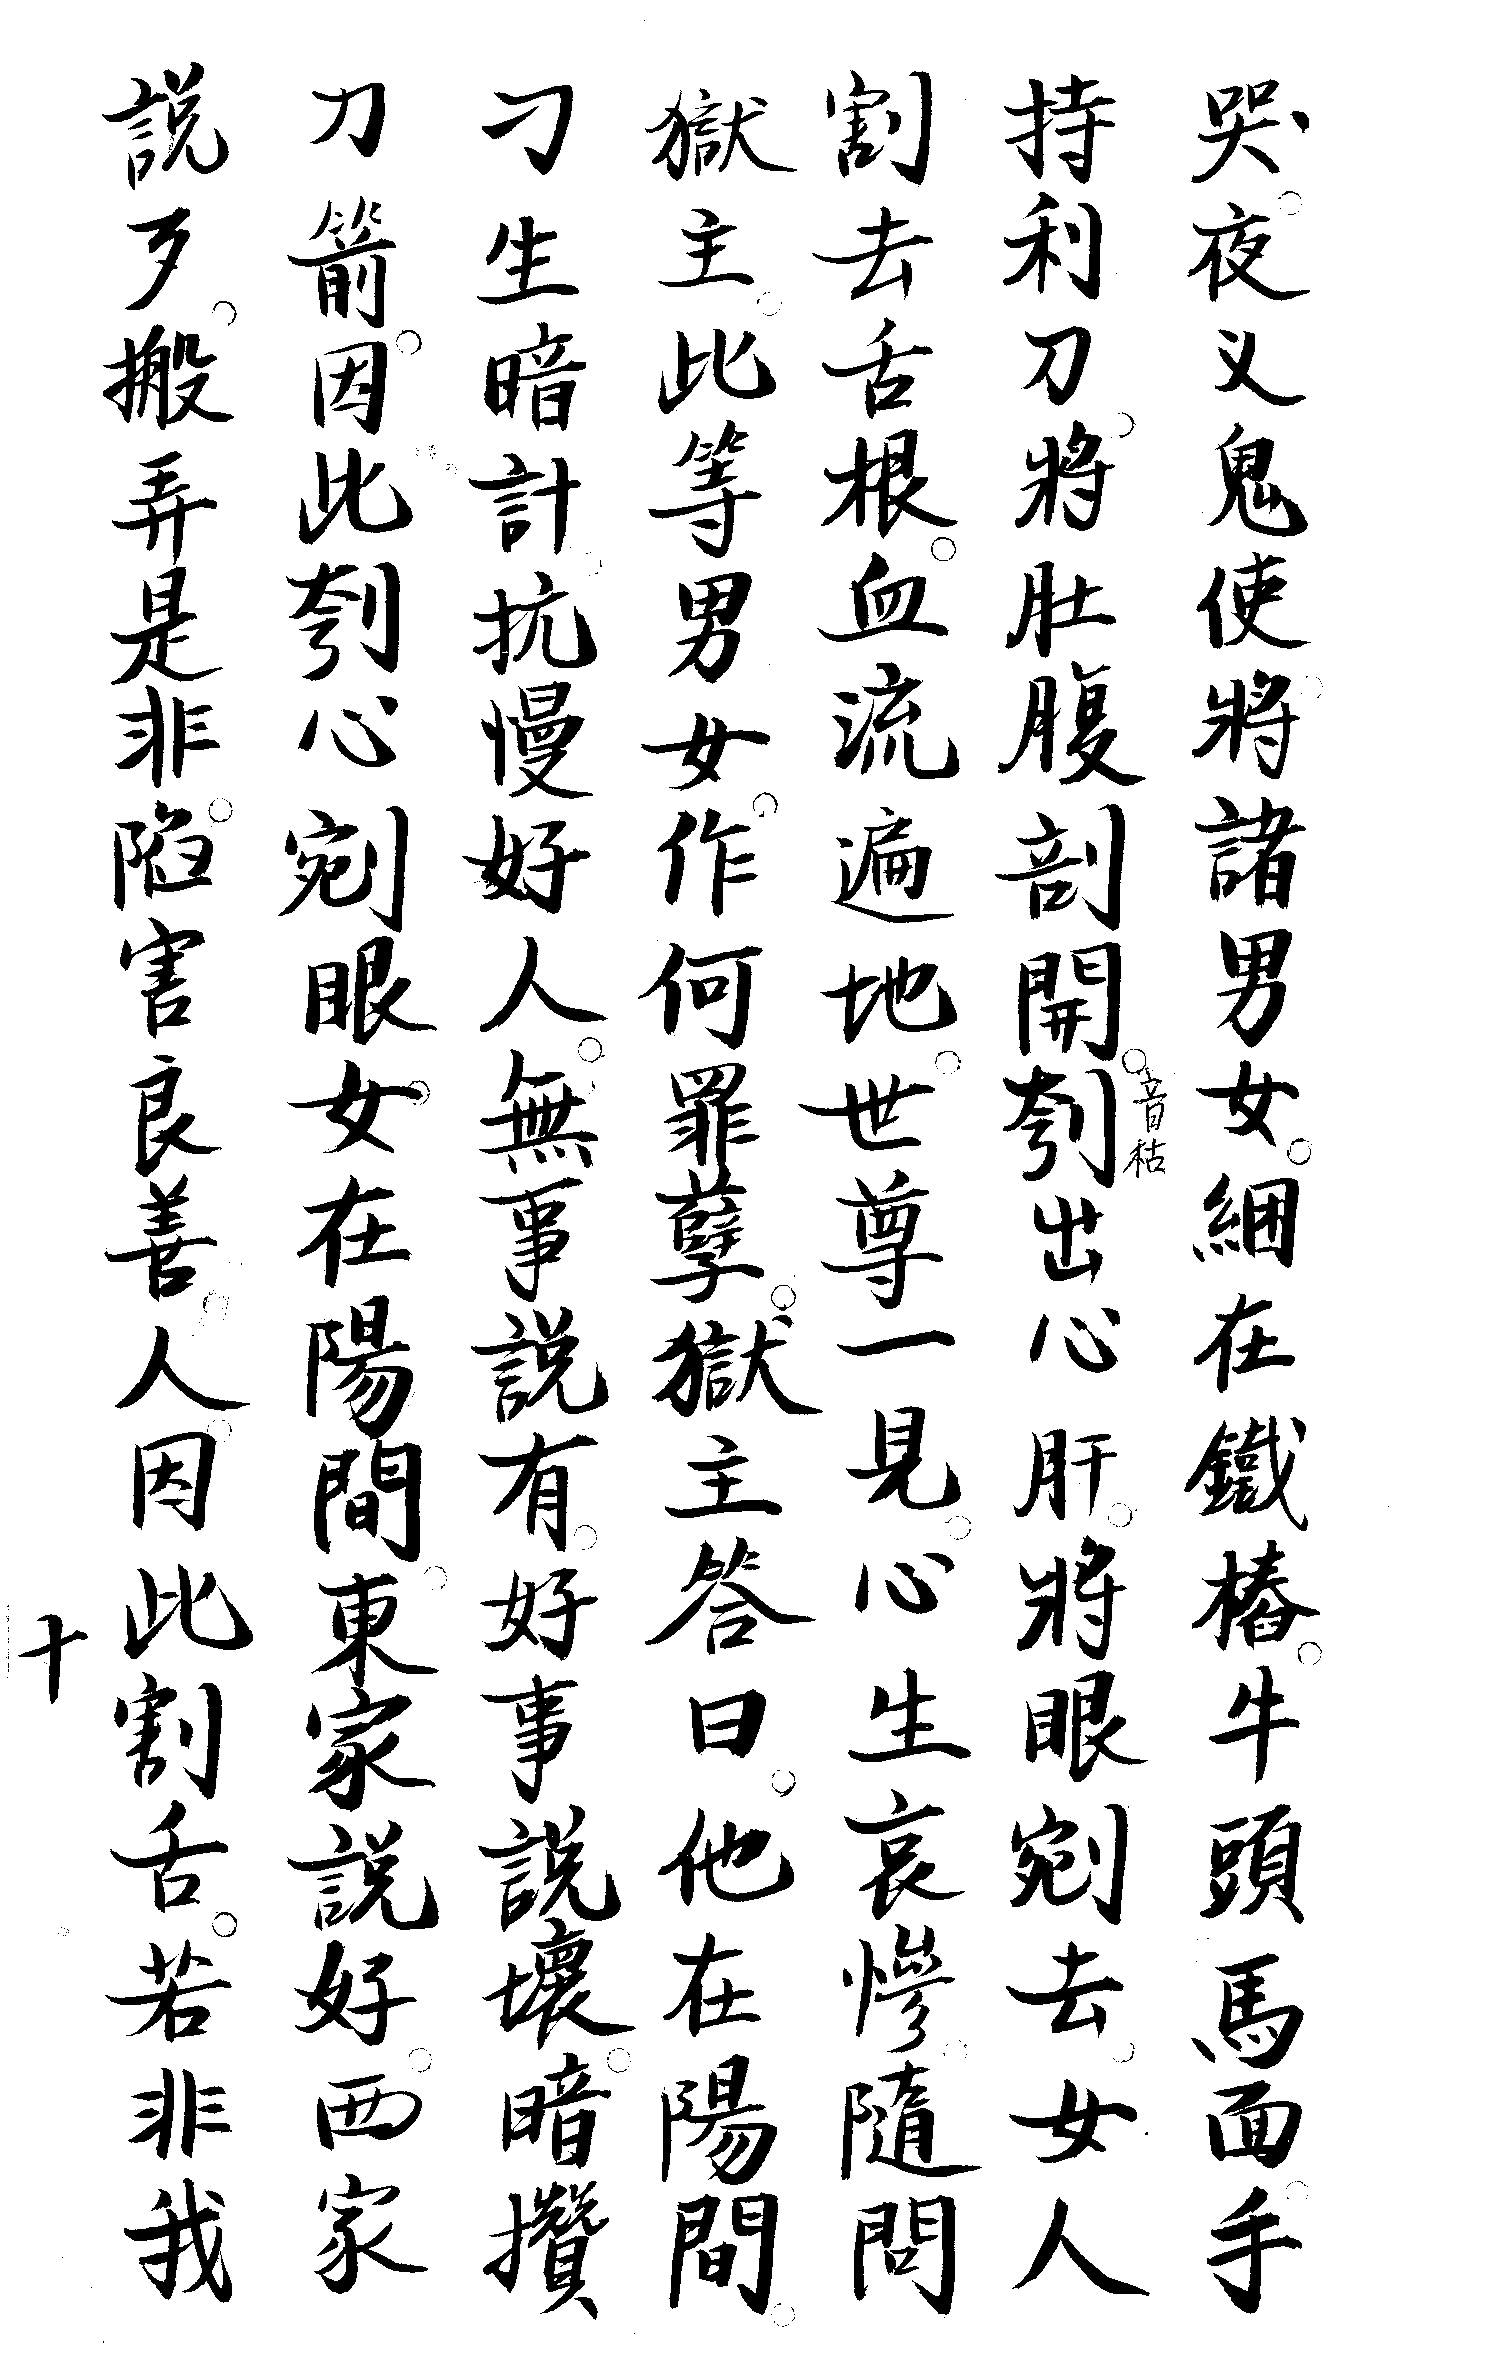 哭。夜乂鬼使。將諸男女。綑在鐵樁。牛頭馬面。手
持利刀。將肚腹剖開。刳音枯出心肝。將眼剜去。女人
割去舌根。血流遍地。世尊一見。心生哀慘。隨問
獄主。此等男女。作何罪孽。獄主答曰。他在陽間。
刁生暗計。抗慢好人。無事說有。好事說壞。暗攢
刀箭。因此刳心剜眼。女在陽間。東家說好。西家
說歹。搬弄是非。陷害良善人。因此割舌。若非我
十